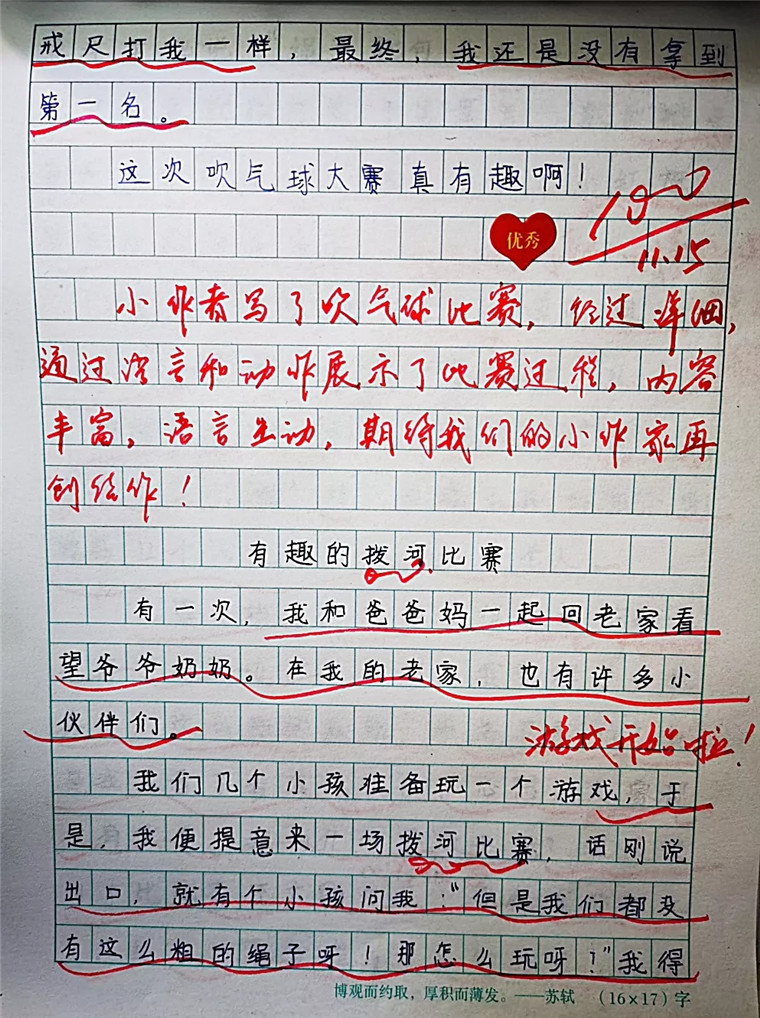 戒尺打我一样，最终，我还是没有拿到
第一名。
这次吹气球大赛真有趣啊！
100
优秀
11.15
小作者写了吹气球比赛，经过详细，
通过语言和动作展示了比赛过程，内容
丰富，语言生动，期待我们的小作家再
创佳作！
有趣的拨河比赛
有一次，我和爸爸妈一起回老家看
望爷爷奶奶。在我的老家，也有许多小
伙伴们。
游戏开始啦！
我们几个小孩准备玩一个游戏，于
是，我便提意来一场拨河比赛，话刚说
出口，就有个小孩问我：“但是我们都没
有这么粗的绳子呀！那怎么玩呀？”我得
博观而约取，厚积而薄发。——苏轼 （16×17）字